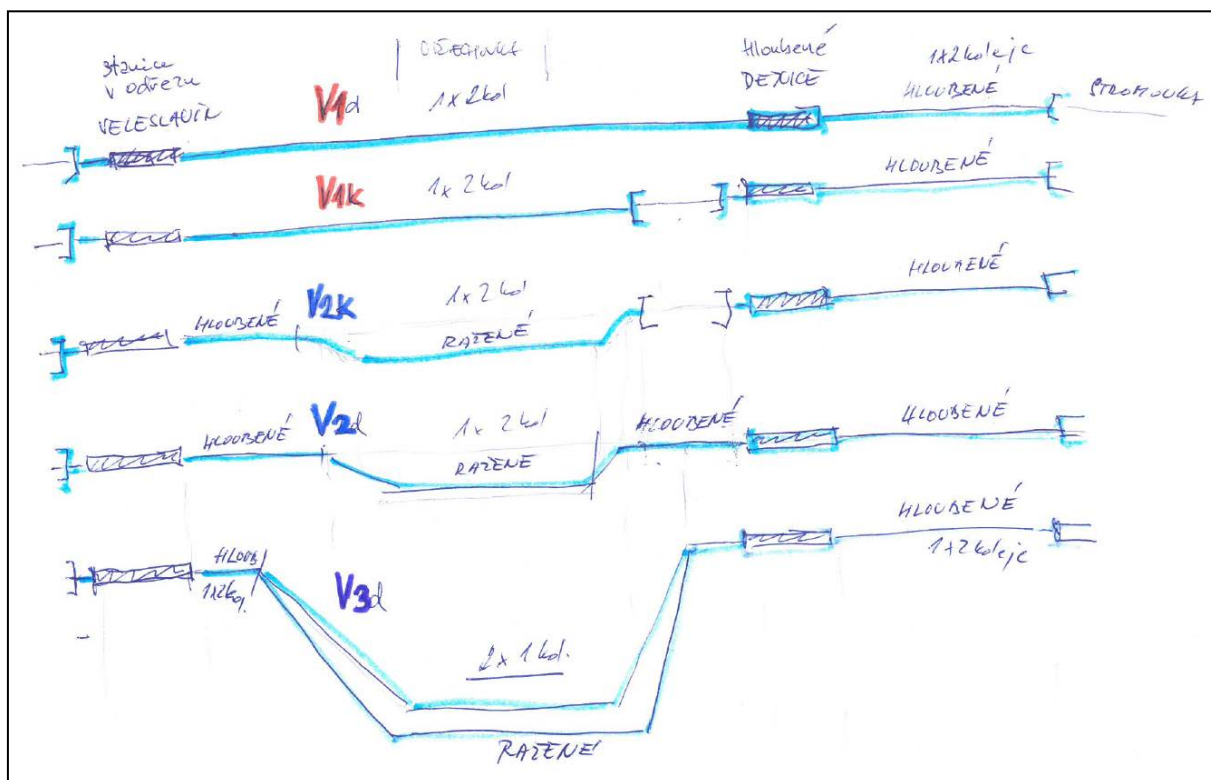 stanice
v odřezu
VELESLAVÍN
OŘECHOVKA
Hloubené
DEJVICE
1x2koleje
HLOUBENÉ
STROMOVKA
V1d
1x2kol
V1K
1x2kol
HLOUBENÉ
V2K
1x2kol
HLOUBENÉ
RAŽENÉ
HLOUBENÉ
V2d
1x2kol
HLOUBENÉ
RAŽENÉ
HLOUBENÉ
HLOUBENÉ
HLOUB
1x2kol.
V3d
2x1kol.
RAŽENÉ
HLOUBENÉ
1x2koleje